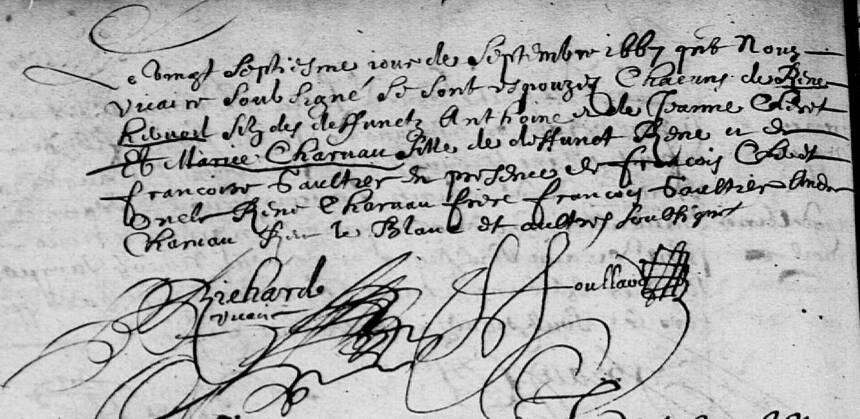 e vingt septiesme jour de Septembre 1667 Nous
vicaire soubsigné se sont espouzez Chacuns de René
filz des deffunctz Anthoine et de Jeanne Colret
Et Marie Charuau fille de deffunct René et de
Francoise Gaultier en presence de François Colret
oncle René Charuau frere François Gaultier Andre
Charuau René le Blanc et aultres soubsignés
Richard
vicaire
oullard